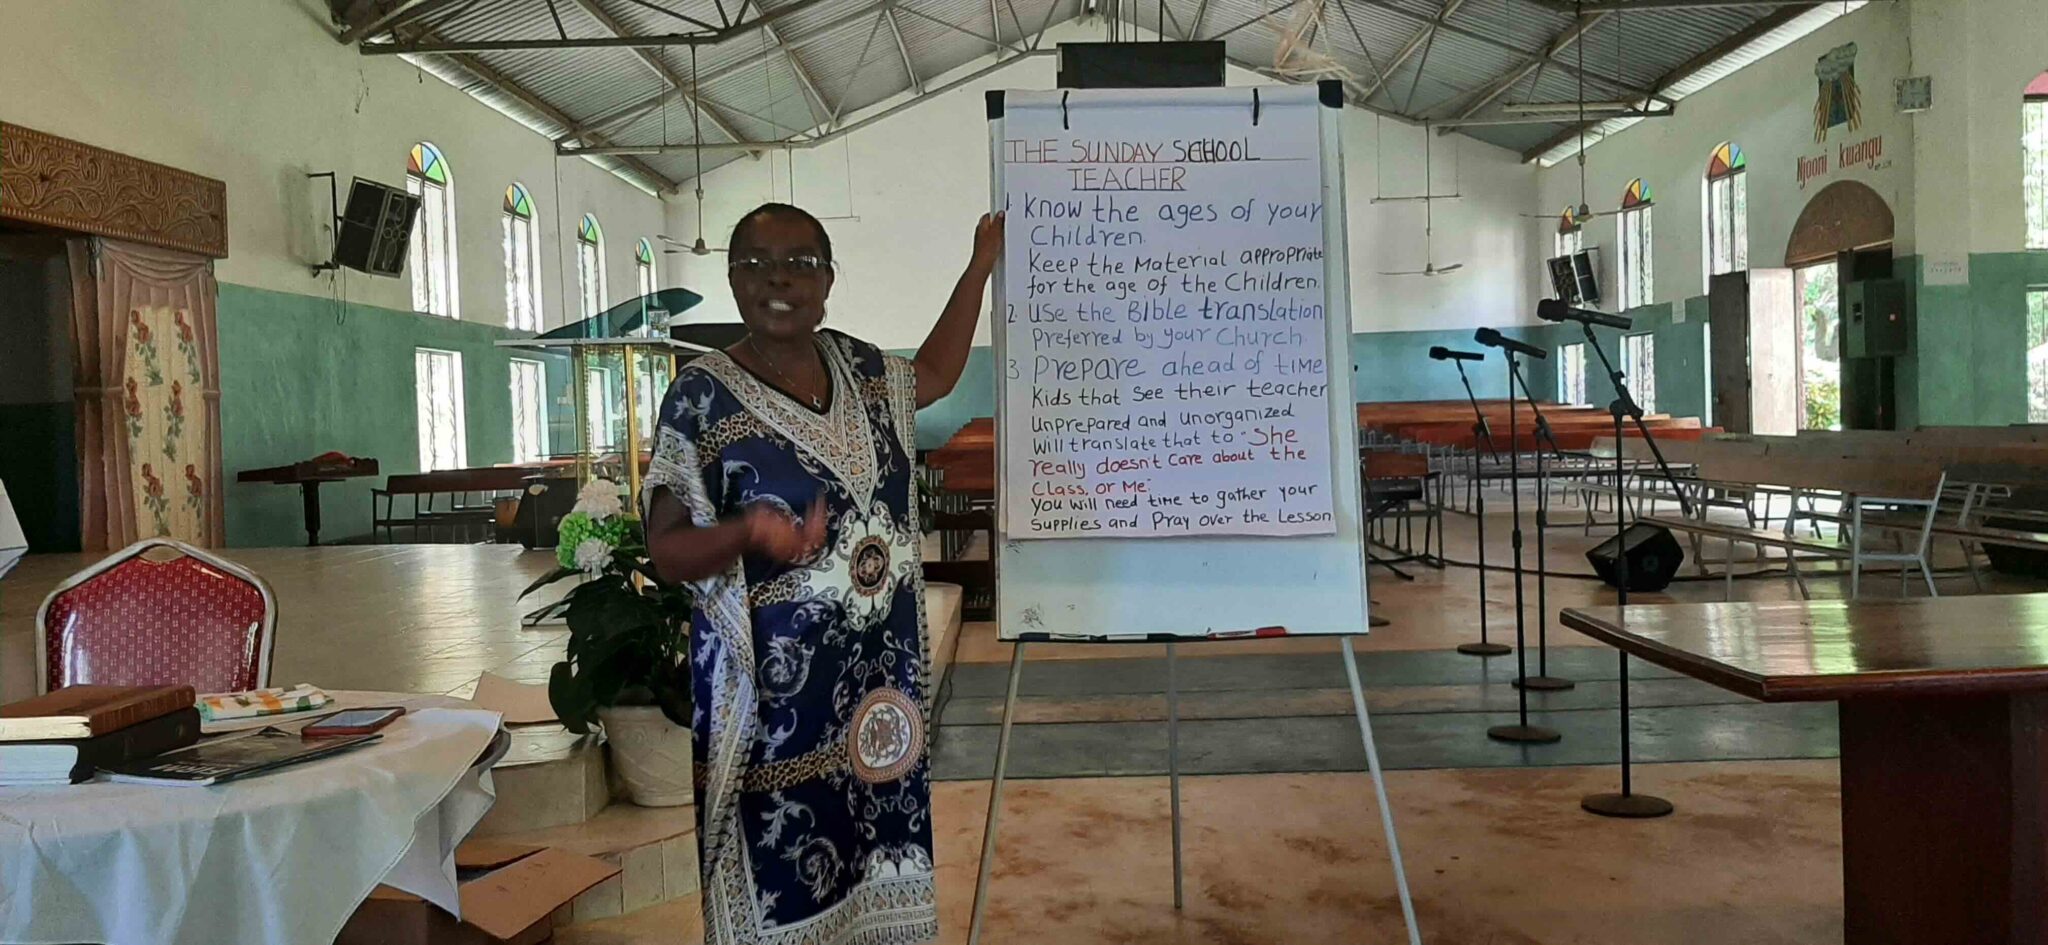 THE SUNDAY SCHOOL
TEACHER
1. Know the ages of your
Children.
Keep the Material appropriate
for the age of the Children.
2. Use the Bible translation
Preferred by your Church.
3. Prepare ahead of time
Kids that see their teacher
unprepared and unorganized
will translate that to "She
really doesn't care about the
Class, or Me."
You will need time to gather your
Supplies and Pray over the Lesson
Njooni kwangu